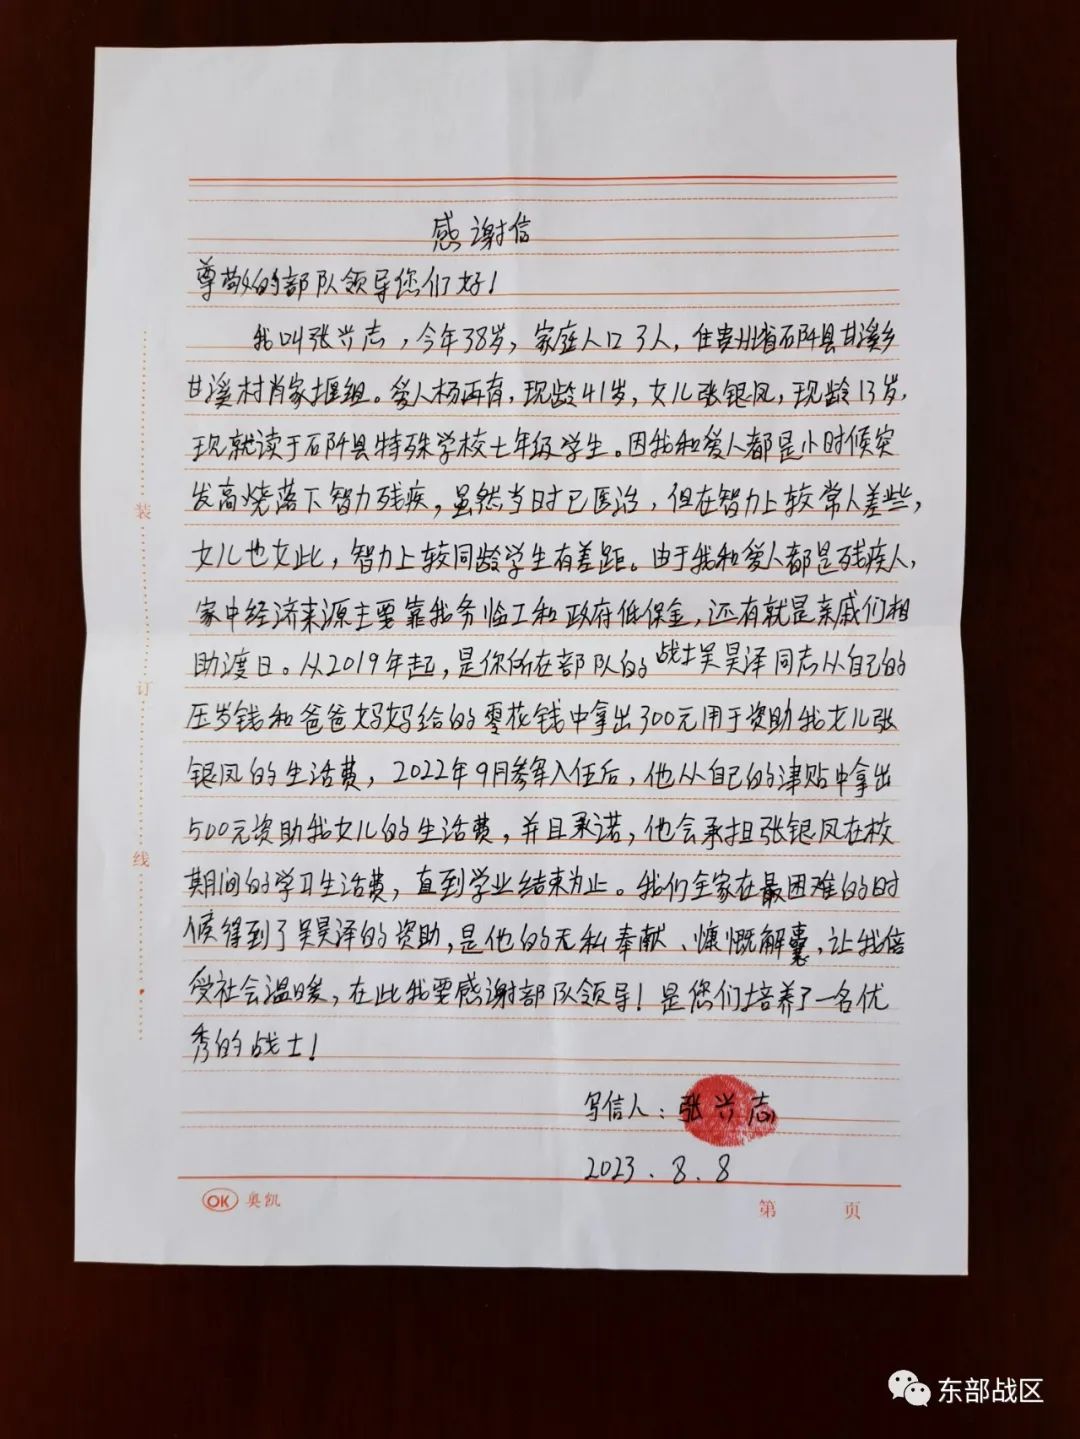 感谢信
尊敬的部队领导您们好!
我叫张兴志,今年38岁,家庭人口3人,住贵州省石阡县甘溪乡
甘溪村肖家堰组。爱人杨再有,现龄41岁,女儿张银凤,现龄13岁,
现就读于石阡县特殊学校七年级学生。因我和爱人都是小时候突
发高烧落下智力残疾,虽然当时已医治,但在智力上较常人差些,
女儿也如此,智力上较同龄学生有差距。由于我和爱人都是残疾人,
家中经济来源主要靠我务临工和政府低保金,还有就是亲戚们相
助渡日。从2019年起,是你所在部队的战士吴昊泽同志从自己的
压岁钱和爸爸妈妈给的零花钱中拿出300元用于资助我女儿张
银凤的生活费,2022年9月参军入伍后,他从自己的津贴中拿出
500元资助我女儿的生活费,并且承诺,他会承担张银凤在校
期间的学习生活费,直到学业结束为止。我们全家在最困难的时
候得到了吴昊泽的资助,是他的无私奉献、慷慨解囊,让我倍
受社会温暖,在此我要感谢部队领导!是您们培养了一名优
秀的战士!
写信人:张兴志
2023.8.8
装
订
线
OK 奥凯
第 页
东部战区